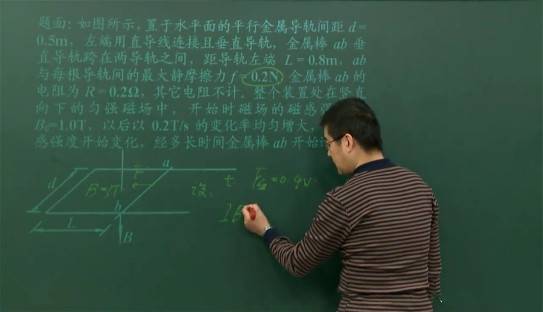 题面：如图所示，置于水平面的平行金属导轨间距 d=
0.5m，左端用直导线连接且垂直导轨，金属棒 ab 垂
直导轨跨在两导轨之间，距导轨左端 L=0.8m，ab
与每根导轨间的最大静摩擦力 f=0.2N，金属棒 ab 的
电阻为 R=0.2Ω，其它电阻不计。整个装置处在竖直
向下的匀强磁场中，开始时磁场的磁感强
B₀=1.0T，以后以 0.2T/s 的变化率均匀增大，
感强度开始变化，经多长时间金属棒 ab 开始
a
d
b
L
B
t